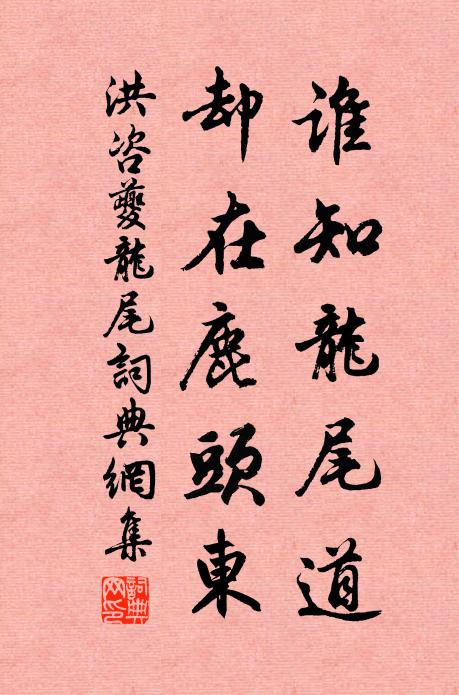 誰知龍尾道
却在鹿頭東
洪咨夔龍尾詞典網集
詞典網印